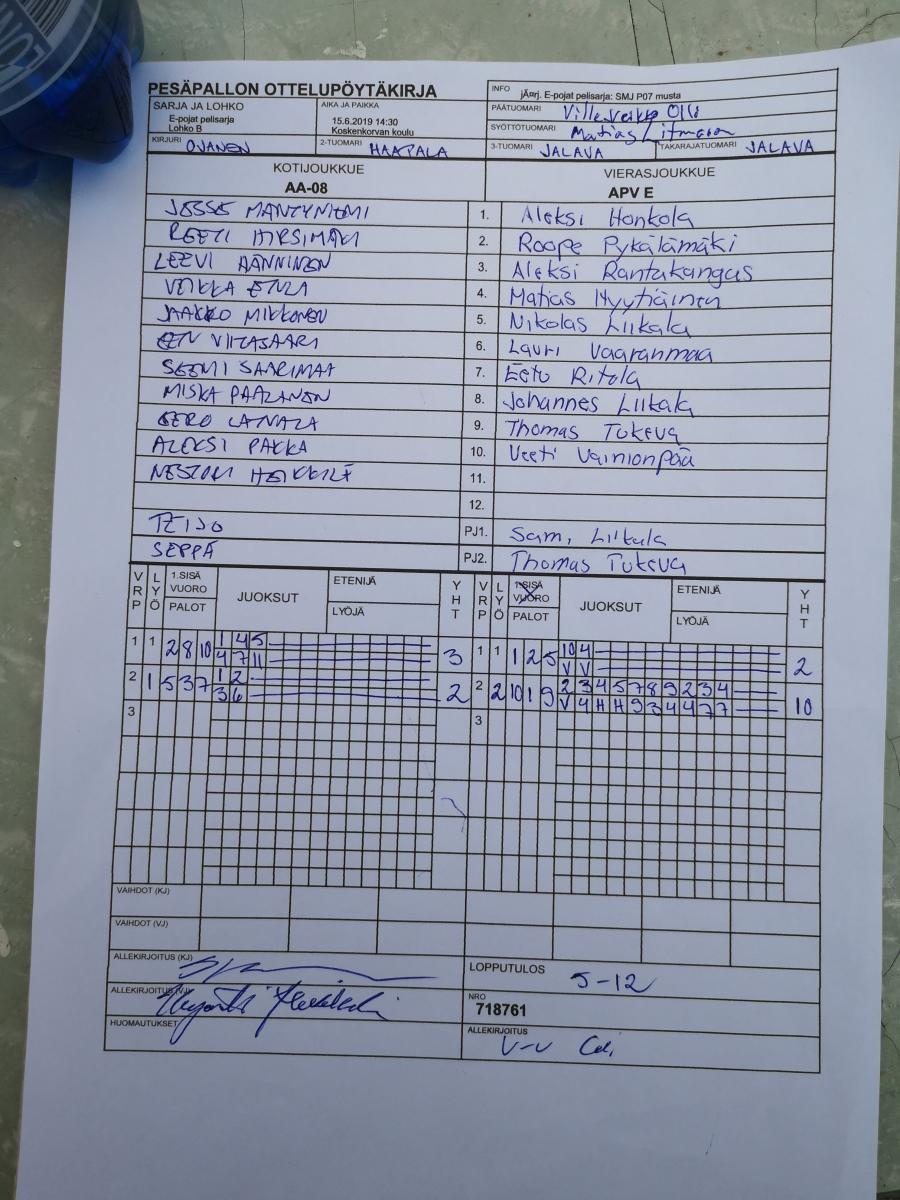 PESÄPALLON OTTELUPÖYTÄKIRJA
INFO jÄ¤rj. E-pojat pelisarja: SMJ P07 musta
SARJA JA LOHKO
E-pojat pelisarja
Lohko B
AIKA JA PAIKKA
15.6.2019 14:30
Koskenkorvan koulu
PÄÄTUOMARI Olli
SYÖTTÖTUOMARI Matias
KIRJURI OJANEN
2-TUOMARI HAAPALA
3-TUOMARI JALAVA
TAKARAJATUOMARI JALAVA
KOTIJOUKKUE
AA-08
VIERASJOUKKUE
APV E
JESSE MÄNTYNIEMI 1. Aleksi Honkola
REETI HIRSIMÄKI 2. Roope Pykälämäki
LEEVI ÄÄNNINEN 3. Aleksi Rantakangas
VEIKKA ETULA 4. Matias Hyytiäinen
JAAKKO MIKKONEN 5. Nikolas Liikala
VIITASAARI 6. Lauri Vaaranmaa
SEEMI SAARIMAA 7. Eetu Ritola
MISKA PAALANEN 8. Johannes Liikala
EERO 9. Thomas Tukeva
ALEKSI PAKKA 10. Veeti Vainionpää
HEIKKILÄ 11.
12.
TEIJO PJ1. Sami Liikala
SEPPÄ PJ2. Thomas Tukeva
VRP LYÖ 1.SISÄ VUORO PALOT JUOKSUT ETENIJÄ LYÖJÄ YHT VRP LYÖ 1.SISÄ VUORO PALOT JUOKSUT ETENIJÄ LYÖJÄ YHT
1 1 2 8 10 1 4 5 3 1 1 1 2 5 10 4 2
4 7 11 V V
2 1 5 3 7 1 2 2 2 2 10 1 9 2 3 4 5 7 8 9 2 3 4 10
3 6 V 4 H H 9 3 4 4 7 7
3 3
VAIHDOT (KJ)
VAIHDOT (VJ)
ALLEKIRJOITUS (KJ)
LOPPUTULOS 5-12
ALLEKIRJOITUS (VJ)
NRO
718761
HUOMAUTUKSET
ALLEKIRJOITUS